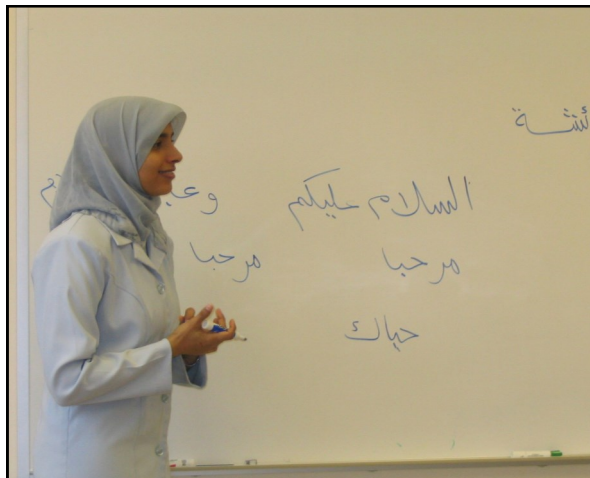 السلام عليكم
مرحبا مرحبا
حياك